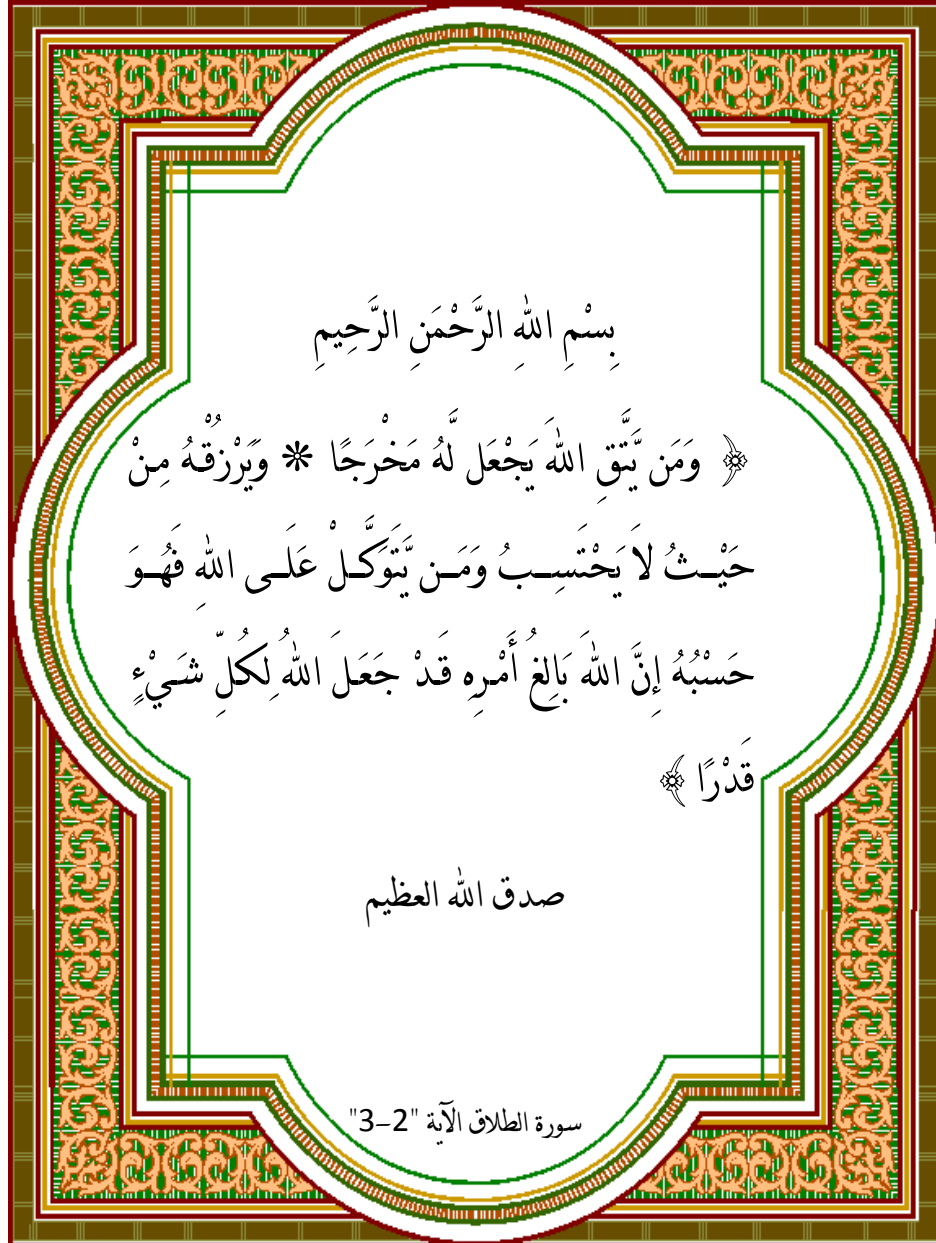 بِسْمِ اللهِ الرَّحْمَنِ الرَّحِيمِ
﴿ وَمَن يَّتَّقِ اللهَ يَجْعَل لَّهُ مَخْرَجًا * وَيَرْزُقْهُ مِنْ
حَيْثُ لاَ يَحْتَسِبُ وَمَن يَّتَوَكَّلْ عَلَى اللهِ فَهُوَ
حَسْبُهُ إِنَّ اللهَ بَالِغُ أَمْرِهِ قَدْ جَعَلَ اللهُ لِكُلِّ شَيْءٍ
قَدْرًا ﴾
صدق الله العظيم
سورة الطلاق الآية "2-3"